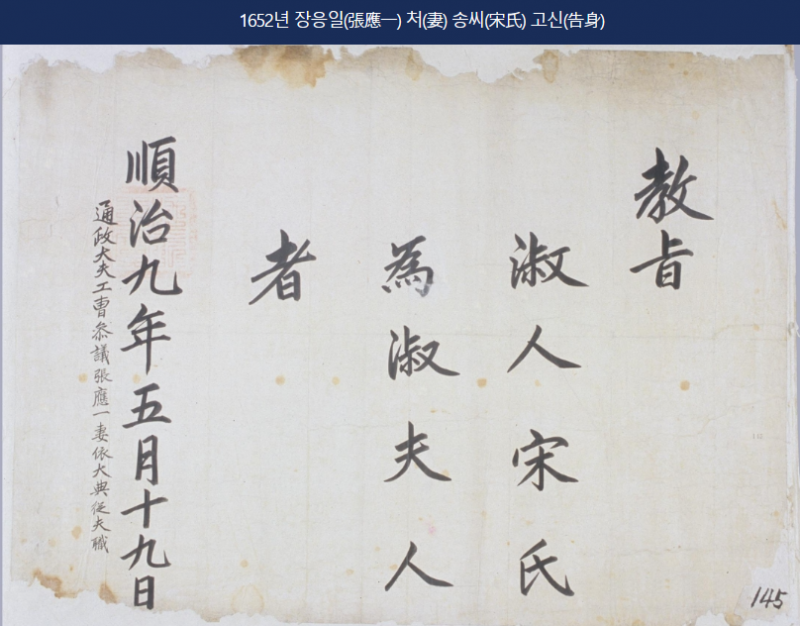 1652년 장응일(張應一) 처(妻) 송씨(宋氏) 고신(告身)
教旨
淑人宋氏
為淑夫人
者
順治九年五月十九日
通政大夫工曺叅議張應一妻依大典從夫職
145